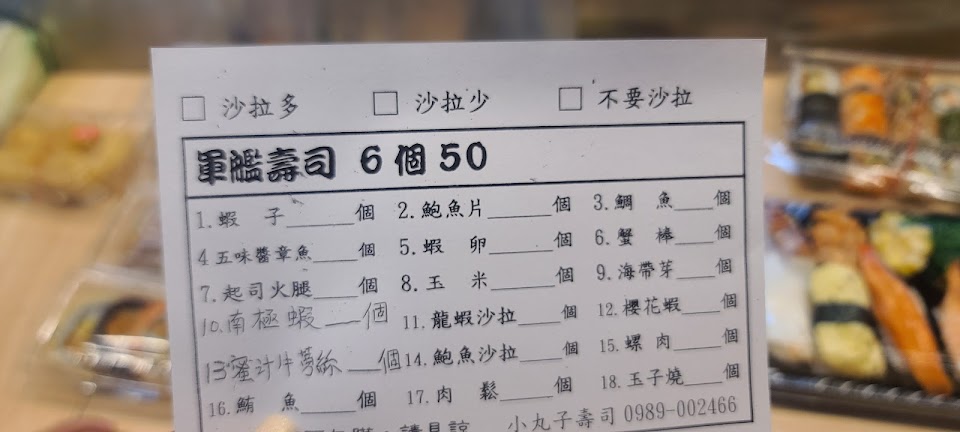 □ 沙拉多 □ 沙拉少 □ 不要沙拉
軍艦壽司 6個50
1.蝦 子______個 2.鮑魚片______個 3.鯛 魚____個
4五味醬章魚____個 5.蝦 卵______個 6.蟹 棒____個
7.起司火腿____個 8.玉 米______個 9.海帶芽____個
10.南極蝦___個 11.龍蝦沙拉____個 12.櫻花蝦____個
13蜜汁牛蒡絲___個 14.鮑魚沙拉____個 15.螺 肉____個
16.鮪 魚____個 17.肉 鬆____個 18.玉子燒____個
請見諒 小丸子壽司 0989-002466